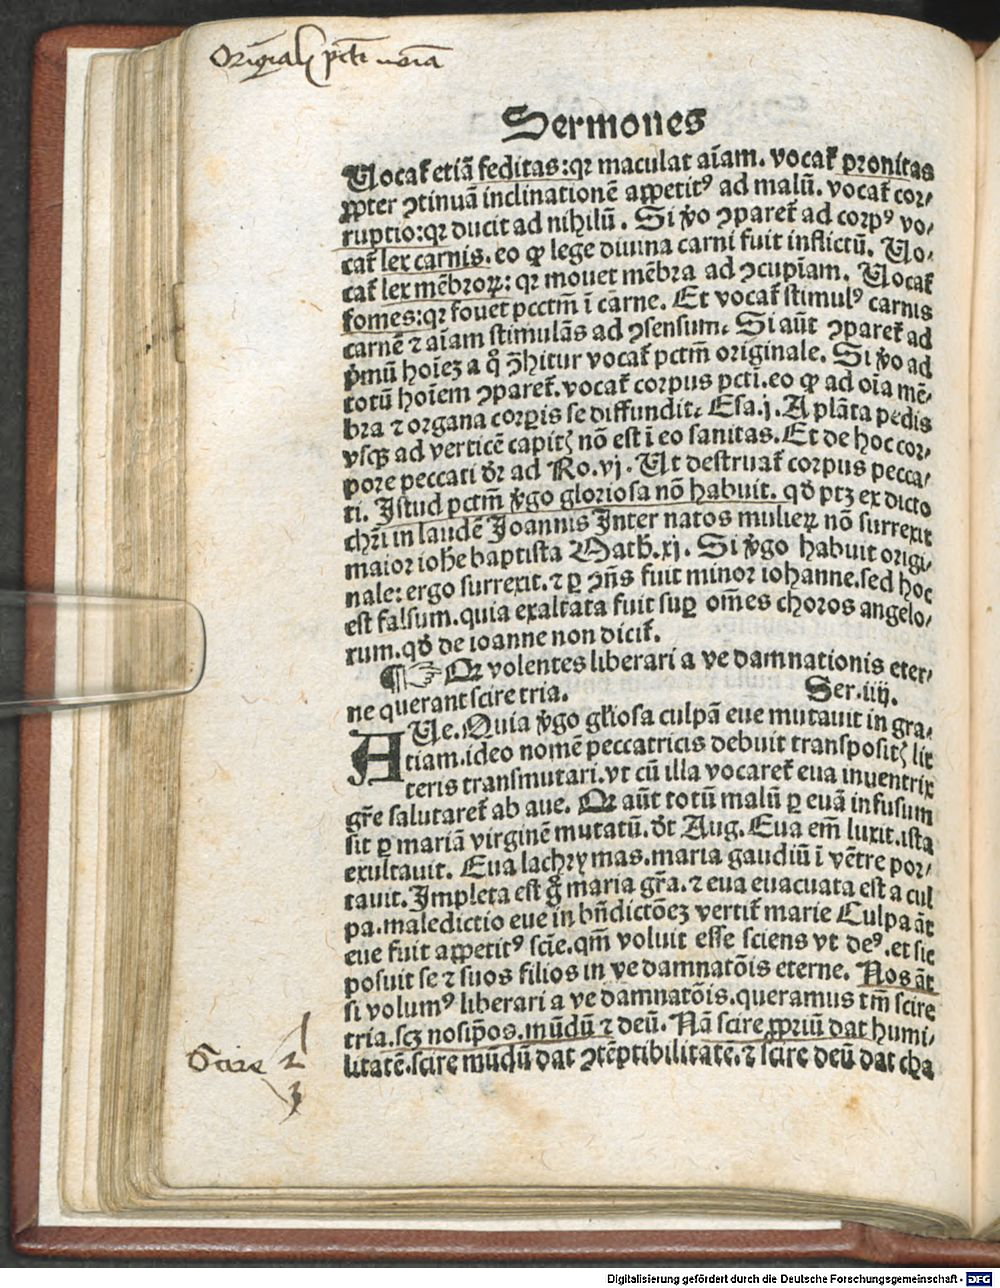 Original pctī noīa
Sermones
Vocat̄ etiā feditas: qꝛ maculat aīam. vocat̄ pronitas
ꝓpter ꝯtinuā inclinationē appetitꝰ ad malū. vocat̄ cor⸗
ruptio: qꝛ ducit ad nihilū. Si ꝟo ꝯparet̄ ad corpꝰ vo⸗
cat̄ lex carnis. eo ꝙ lege diuina carni fuit inflictū. Vo⸗
cat̄ lex mēbroꝝ: qꝛ mouet mēbra ad ꝯcupīam. Vocat̄
fomes: qꝛ fouet pcctm̄ ī carne. Et vocat̄ stimulꝰ carnis
carnē ⁊ aīam stimulās ad ꝯsensum. Si aūt ꝯparet̄ ad
p̄mū hoīeꝫ a qͦ ꝯ̄hitur vocat̄ pctm̄ originale. Si ꝟo ad
totū hoīem ꝯparet̄. vocat̄ corpus pcti. eo ꝙ ad oīa mē⸗
bra ⁊ organa corꝑis se diffundit. Esa. j. A plāta pedis
vsqꝫ ad verticē capitꝭ nō est ī eo sanitas. Et de hoc cor⸗
pore peccati dr̄ ad Ro. vj. Vt destruat̄ corpus pecca⸗
ti. Istud pctm̄ ꝟgo gloriosa nō habuit. qđ ptꝫ ex dicto
chr̄i in laudē Joannis Inter natos mulieꝝ nō surrexit
maior ioh̄e baptista Math. xj. Si ꝟgo habuit origi⸗
nale: ergo surrexit. ⁊ ꝑ ꝯn̄s fuit minor iohanne. sed hoc
est falsum. quia exaltata fuit suꝑ om̄es choros angelo⸗
rum. qđ de ioanne non dicit̄.
¶ ☞ Qꝛ volentes liberari a ve damnationis eter⸗
ne querant scire tria. Ser. iiij.
AUe. Quia ꝟgo gl̄iosa culpā eue mutauit in gra⸗
tiam. ideo nomē peccatricis debuit transpositꝭ lit
teris transmutari. vt cū illa vocaret̄ eua inuentrix
gr̄e salutaret̄ ab aue. Qꝛ aūt totū malū ꝑ euā infusum
sit ꝑ mariā virginē mutatū. dt̄ Aug. Eua em̄ luxit. ista
exultauit. Eua lachrymas. maria gaudiū ī vētre por⸗
tauit. Impleta est gͦ maria gr̄a. ⁊ eua euacuata est a cul
pa. maledictio eue in bn̄dictōeꝫ vertit̄ marie Culpa āt
eue fuit appetitꝰ scīe. qm̄ voluit esse sciens vt deꝰ. et sic
posuit se ⁊ suos filios in ve damnatōis eterne. Nos āt
si volumꝰ liberari a ve damnatōis. queramus tm̄ scire
tria. scꝫ nosip̄os. mūdū ⁊ deū. Nā scire ꝓpriū dat humi⸗
litatē. scire mūdū dat ꝯtēptibilitatē. ⁊ scire deū dat cha
Scire 1
2
3
Digitalisierung gefördert durch die Deutsche Forschungsgemeinschaft - DFG